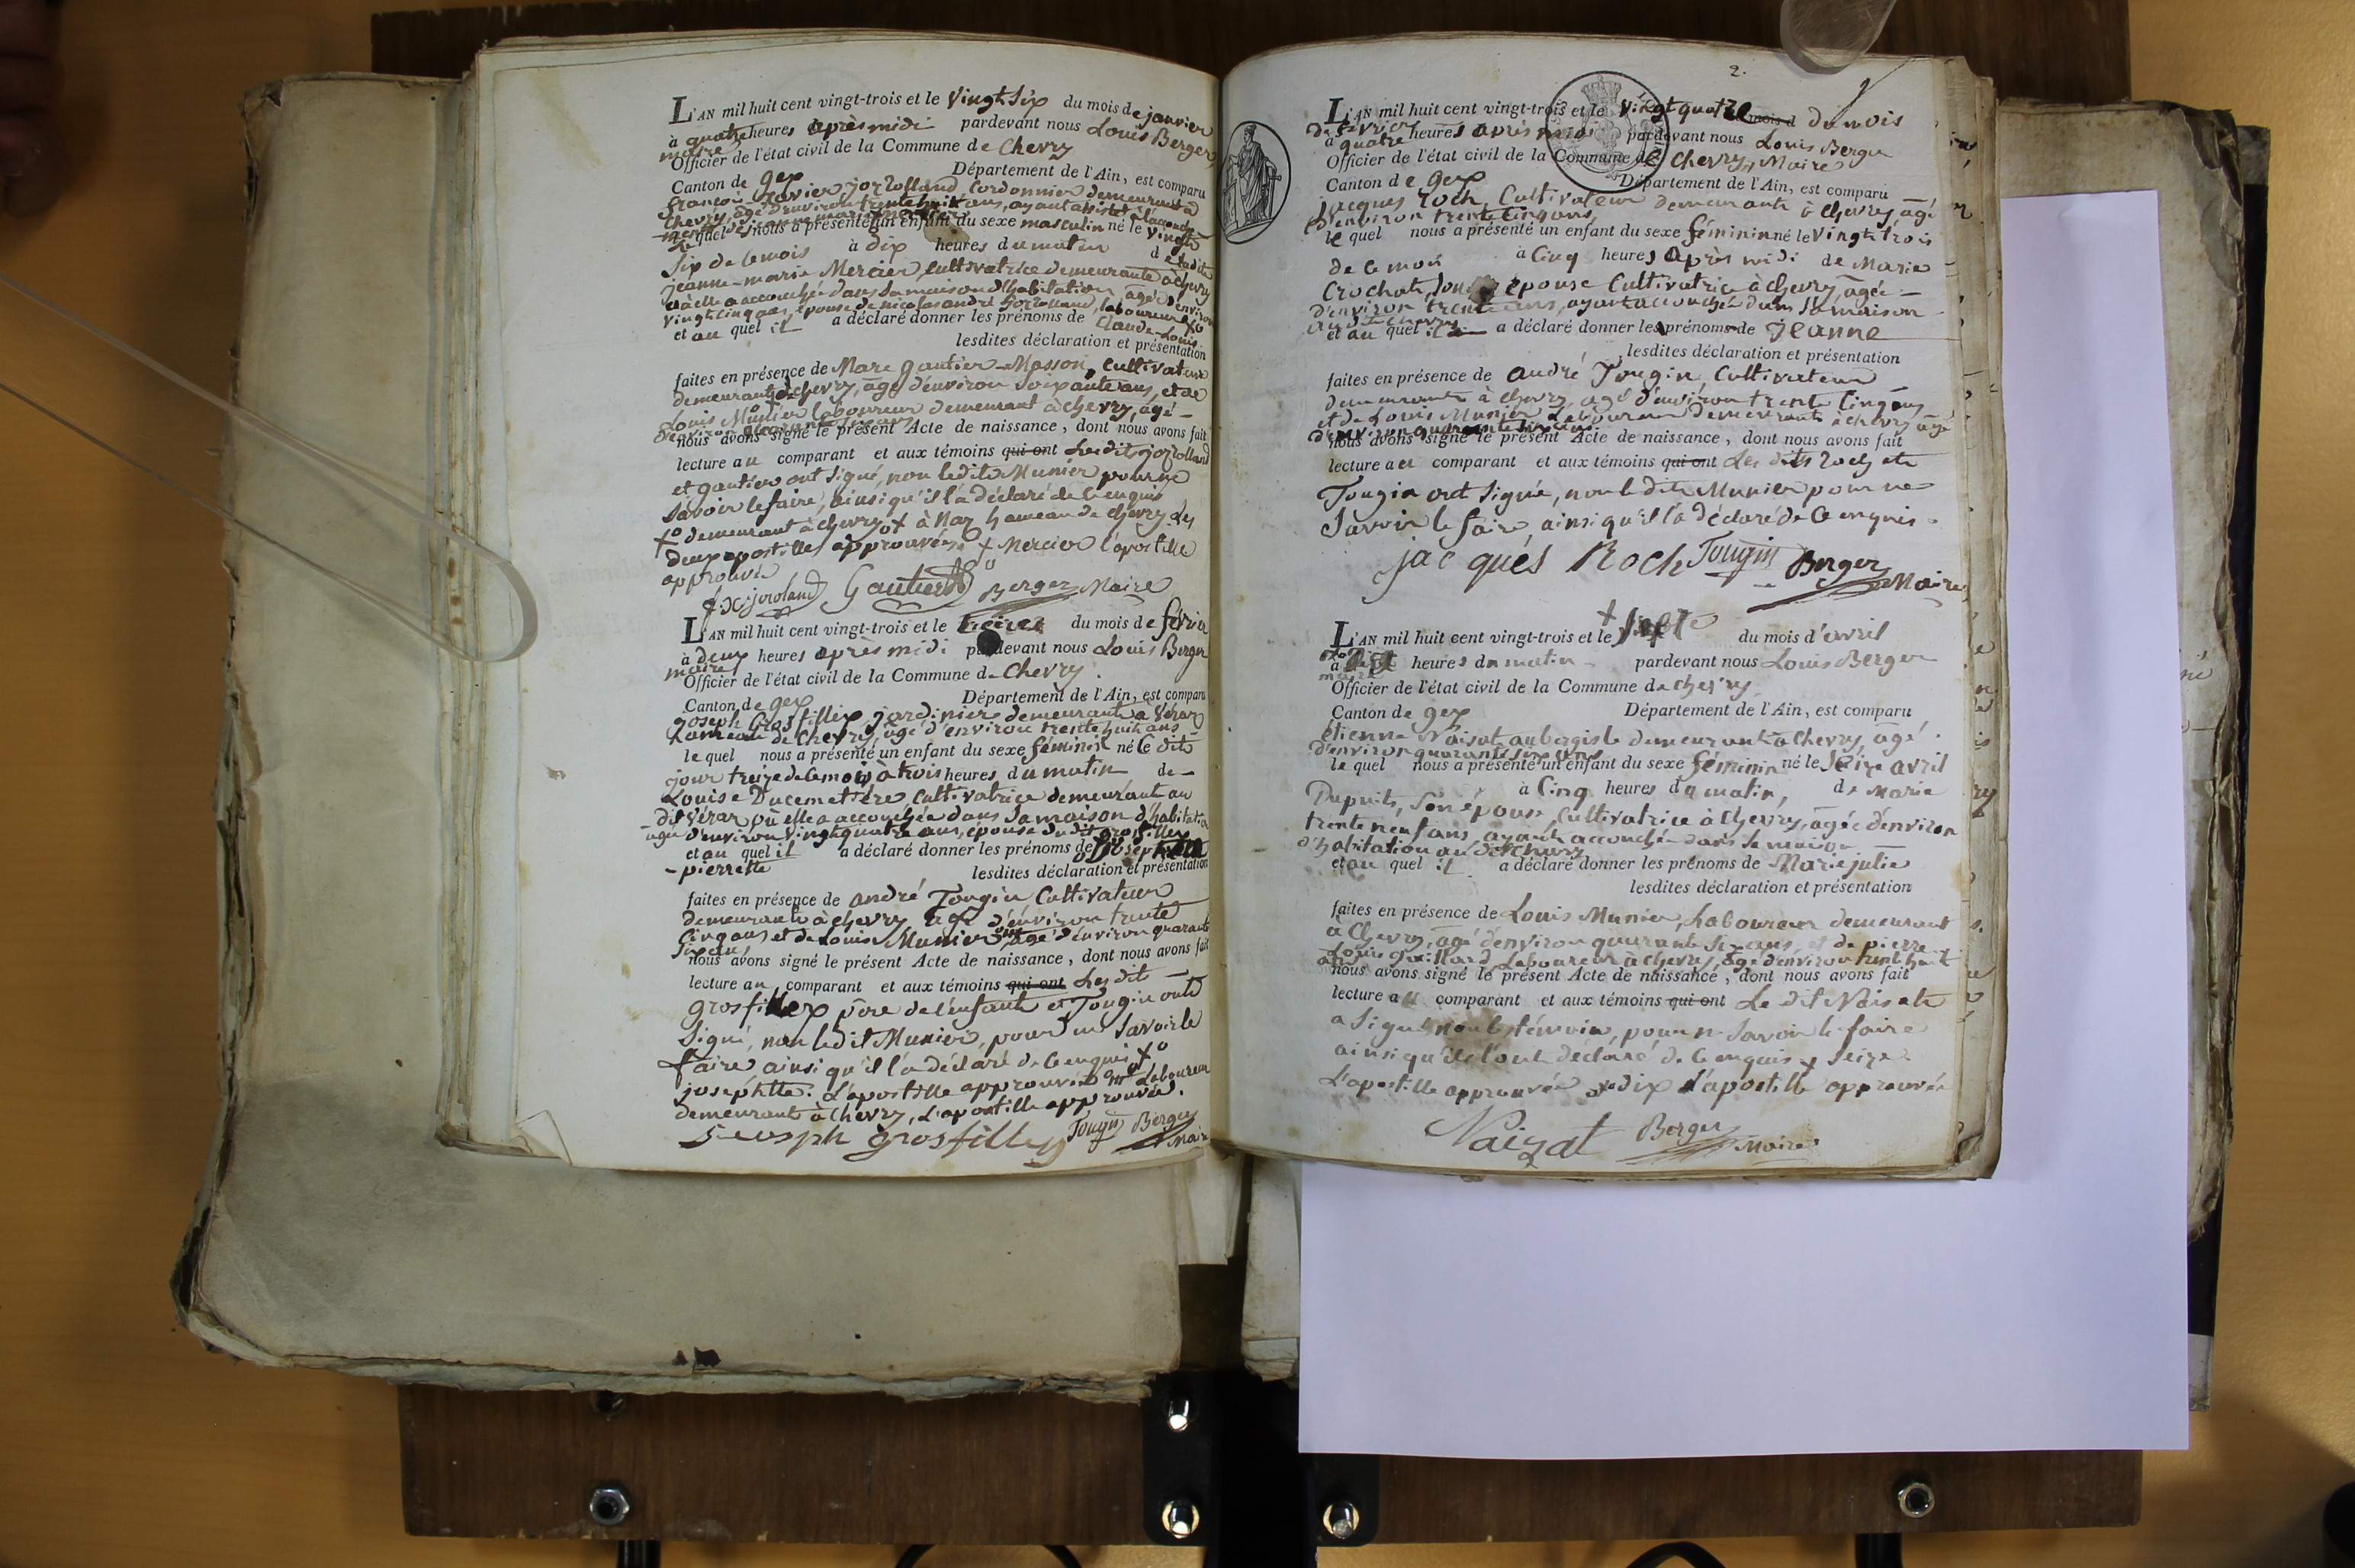 L'AN mil huit cent vingt-trois et le vingt six du mois de janvier
à quatre heures après midi pardevant nous Louis Berger
maire
Officier de l'état civil de la Commune de Chevry
Canton de gex Département de l'Ain, est comparu
françois Xavier jorolland, Cordonnier demeurant à
Chevry, agé d'environ trente huit ans, ayant assisté à l'accouche
ment de jeanne marie
le quel nous a présenté un enfant du sexe masculin né le vingt
six de ce mois à dix heures du matin de ladite
jeanne-marie Mercier, Cultivatrice demeurante à chevry
où elle a accouchée dans sa maison d'habitation, agée d'environ
vingt cinq ans, épouse de nicolas andré jorolland, laboureur
et au quel il a déclaré donner les prénoms de Claude-Louis
lesdites déclaration et présentation
faites en présence de Marc gautier-Masson, Cultivateur
demeurant à chevry, agé d'environ soixante ans, et de
Louis Munier laboureur demeurant à chevry, agé
d'environ quarante six ans
nous avons signé le présent Acte de naissance, dont nous avons fait
lecture au comparant et aux témoins qui ont Lesdits jorolland
et gautier ont signé, non ledit Munier pour ne
savoir le faire, ainsi qu'il l'a déclaré de ce enquis
+° demeurant à chevry ox à Naz hameau de chevry. Les
deux apostilles approuvées. + Mercier l'apostille
approuvée
f. X. joroland Gautier Berger Maire
L'AN mil huit cent vingt-trois et le treize du mois de février
à deux heures après midi pardevant nous Louis Berger
maire
Officier de l'état civil de la Commune de Chevry.
Canton de gex Département de l'Ain, est comparu
joseph Grosfillex, jardinier demeurant à Véraz
hameau de Chevry, agé d'environ trente huit ans
le quel nous a présenté un enfant du sexe féminin né le dit
jour treize de ce mois, à trois heures du matin de
Louise Ducemetière, Cultivatrice demeurant au
dit Véraz où elle a accouchée dans sa maison d'habitation
agée d'environ vingt quatre ans, épouse dudit grosfillex
et au quel il a déclaré donner les prénoms de
-pierrette lesdites déclaration et présentation
faites en présence de andré Tougin Cultivateur
demeurant à chevry agé d'environ trente
Cinq ans, et de Louis Munier agé d'environ quarante
six ans
nous avons signé le présent Acte de naissance, dont nous avons fait
lecture au comparant et aux témoins qui ont Lesdits
grosfillex père de l'enfant et Tougin ont
signé, non ledit Munier, pour ne savoir le
faire, ainsi qu'il l'a déclaré de ce enquis +°
josephtte. L'apostille approuvée Laboureur
demeurant à chevry, L'apostille approuvée.
joseph grosfillex Tougin Berger Maire
2.
L'AN mil huit cent vingt-trois et le vingt quatre du mois
de février
à quatre heures après midi pardevant nous Louis Berger
Officier de l'état civil de la Commune de Chevry, Maire
Canton de gex Département de l'Ain, est comparu
jacques Roch, Cultivateur demeurant à chevry, agé
d'environ trente cinq ans,
le quel nous a présenté un enfant du sexe féminin né le vingt trois
de ce mois à Cinq heures après midi de Marie
Crochat, son épouse Cultivatrice à chevry, agée
d'environ trente ans, ayant accouchée dans sa maison
audit chevry
et au quel il a déclaré donner les prénoms de Jeanne
lesdites déclaration et présentation
faites en présence de andré Tougin, Cultivateur
demeurant à chevry, agé d'environ trente Cinq ans
et de Louis Munier Laboureur demeurant à chevry agé
d'environ quarante six ans
nous avons signé le présent Acte de naissance, dont nous avons fait
lecture au comparant et aux témoins qui ont Les dits Roch et
Tougin ont signé, non ledit Munier pour ne
savoir le faire, ainsi qu'il l'a déclaré de ce enquis.
jacques Roch Tougin Berger Maire
L'AN mil huit cent vingt-trois et le + du mois d'avril
à heures du matin pardevant nous Louis Berger
maire
Officier de l'état civil de la Commune de chevry
Canton de gex Département de l'Ain, est comparu
étienne Naisat aubergiste demeurant à Chevry, agé
d'environ quarante six ans
le quel nous a présenté un enfant du sexe féminin né le seize avril
à Cinq heures du matin, de Marie
Dupuits, son épouse, Cultivatrice à Chevry, agée d'environ
trente neuf ans, ayant accouchée dans sa maison
d'habitation au dit chevry
et au quel il a déclaré donner les prénoms de Marie julie
lesdites déclaration et présentation
faites en présence de Louis Munier, Laboureur demeurant
à Chevry, agé d'environ quarante six ans, et de pierre
Louis Laboureur à chevry, agé d'environ trente huit
ans
nous avons signé le présent Acte de naissance, dont nous avons fait
lecture au comparant et aux témoins qui ont Le dit Naisat
a signé, non les témoins, pour ne savoir le faire
ainsi qu'ils l'ont déclaré de ce enquis + seize
L'apostille approuvée dix L'apostille approuvée
Naizat Berger Maire